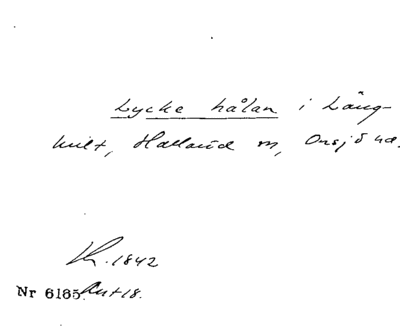 Lycke hålan i Lång-
hult, Halland m, Onsjö hd.
Kr. 1842
Nr 6185.